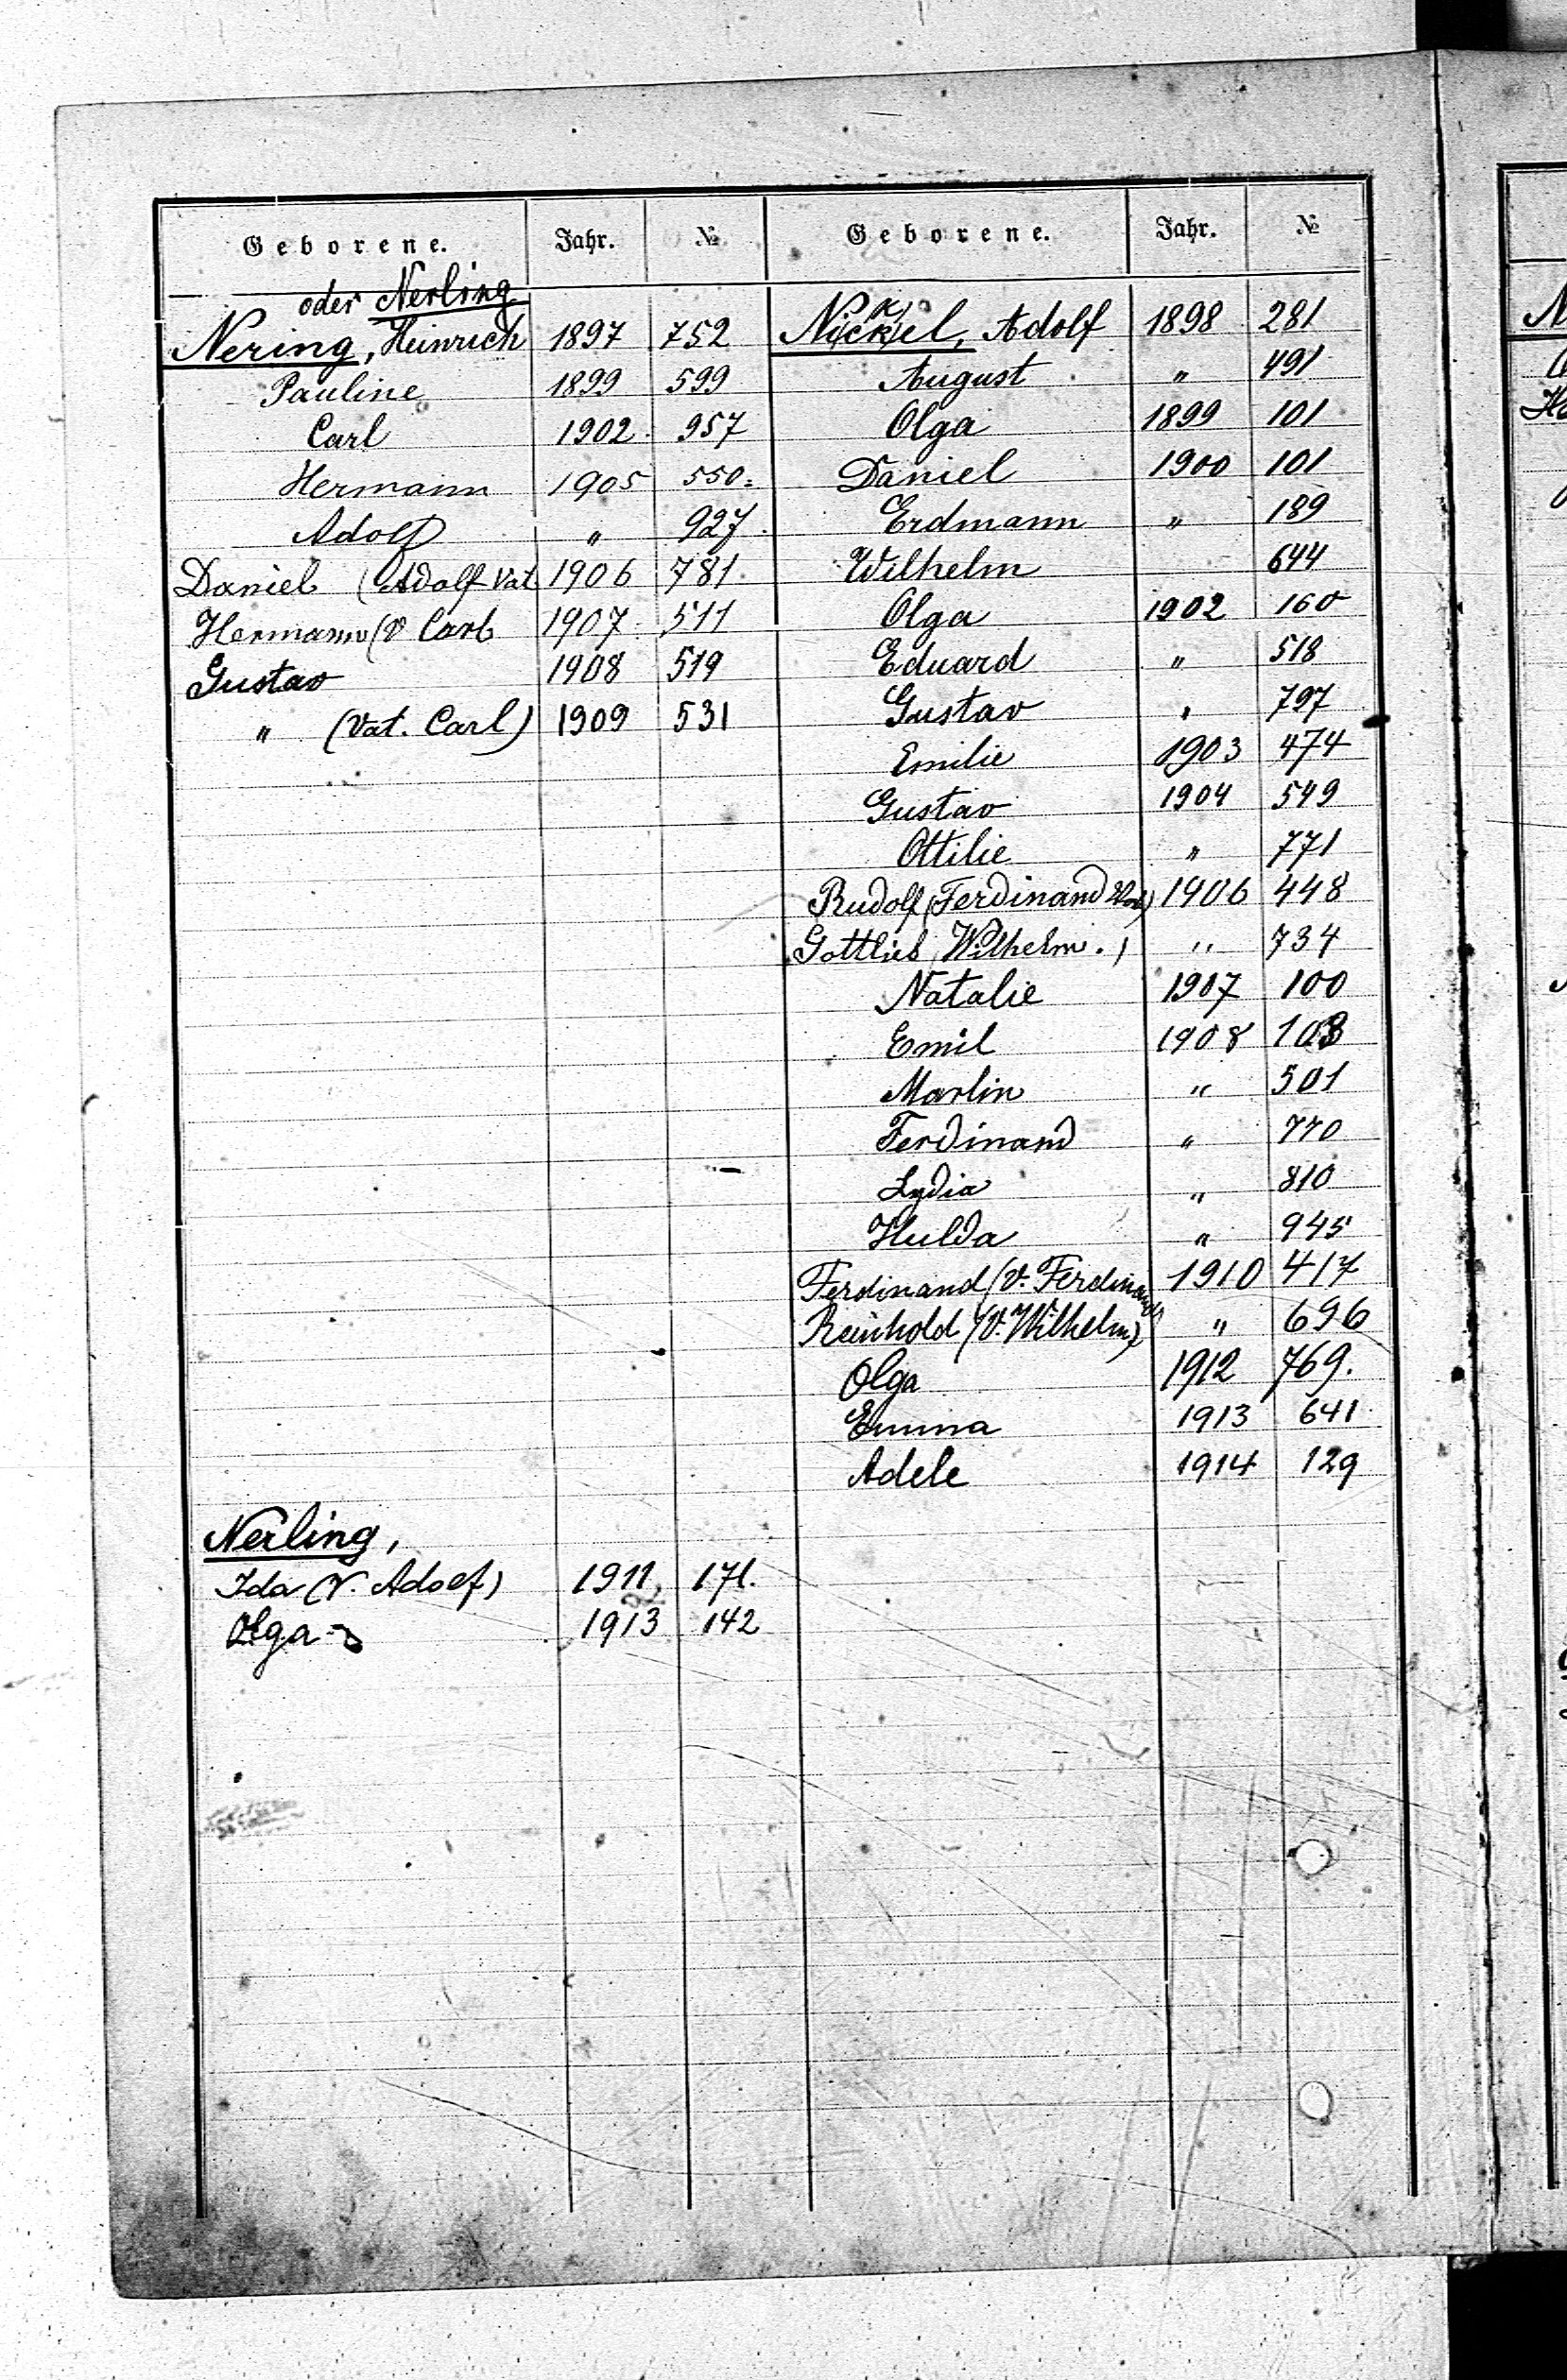 Geborene. Jahr. № Geborene. Jahr. №
oder Nerling
Nering, Heinrich 1897 752
Pauline 1899 599
Carl 1902 957
Hermann 1905 550
Adolf " 927
Daniel (Adolf Vat 1906 781
Hermann (V Carl 1907 511
Gustav 1908 519
" (Vat. Carl) 1909 531
Nerling,
Ida (V. Adolf) 1911 171.
Olga 1913 142
Nickel, Adolf 1898 281
August " 491
Olga 1899 101
Daniel 1900 101
Erdmann " 189
Wilhelm 644
Olga 1902 160
Eduard " 518
Gustav " 797
Emilie 1903 474
Gustav 1904 549
Ottilie " 771
Rudolf (Ferdinand Vat) 1906 448
Gottlieb (Wilhelm.) " 734
Natalie 1907 100
Emil 1908 103
Martin " 501
Ferdinand " 770
Lydia " 810
Hulda " 945
Ferdinand (V. Ferdinand) 1910 417
Reinhold (V. Wilhelm) " 696
Olga 1912 769.
Emma 1913 641
Adele 1914 129